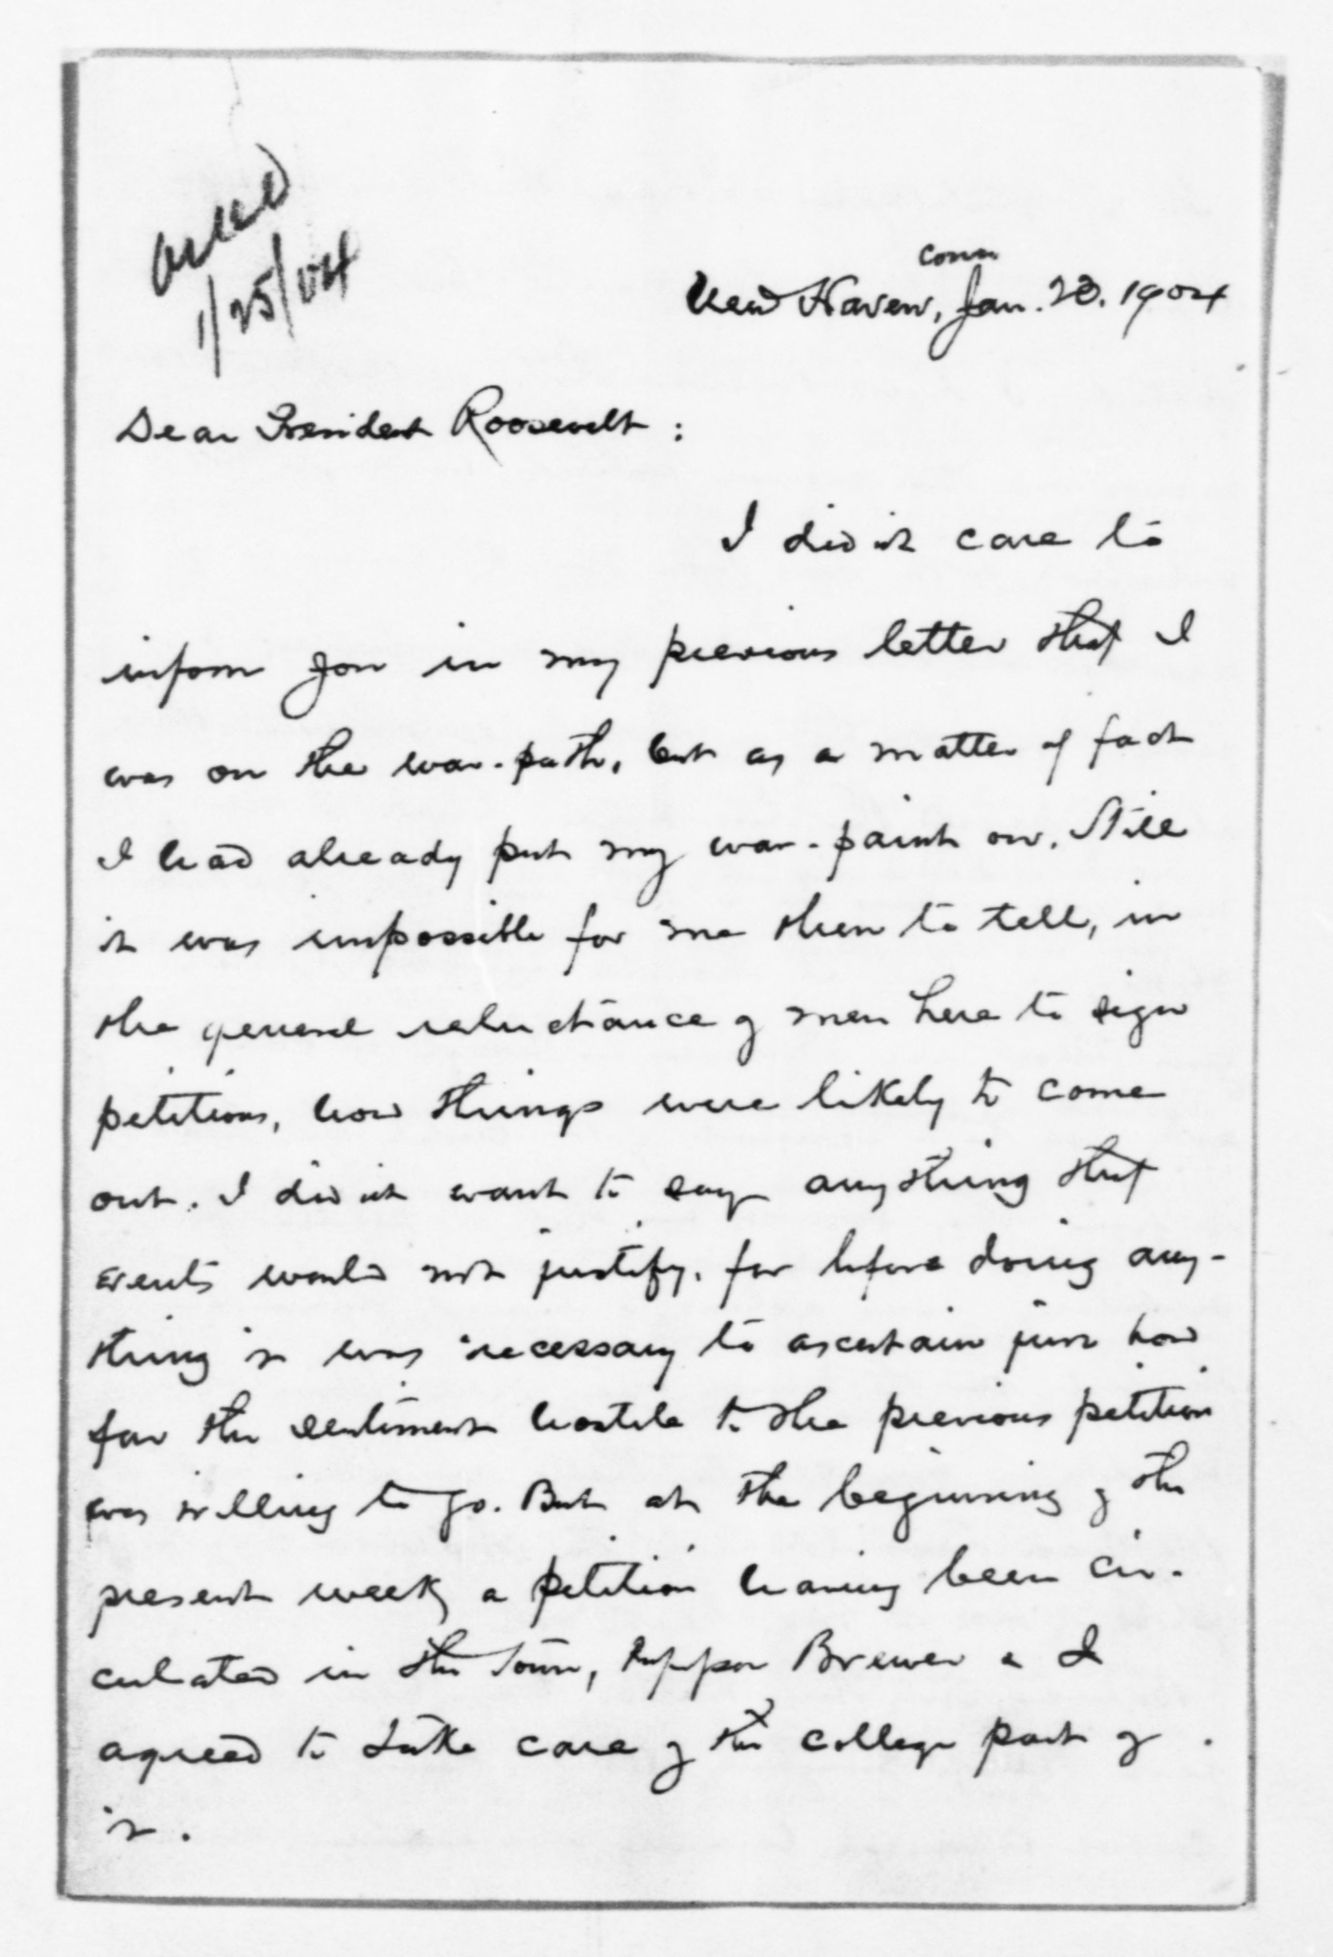 Ackd
1/25/04
Conn
New Haven, Jan. 23. 1904
Dear President Roosevelt :
I didn't care to
inform you in my previous letter that I
was on the war-path, but as a matter of fact
I had already put my war-paint on. Still
it was impossible for me then to tell, in
the general reluctance of men here to sign
petitions, how things were likely to come
out. I didn't want to say anything that
events would not justify, for before doing any-
thing it was necessary to ascertain just how
far the sentiment hostile to the previous petition
was willing to go. But at the beginning of the
present week, a petition having been cir-
culated in the town, Brewer & I
agreed to take care of the college part of
it.